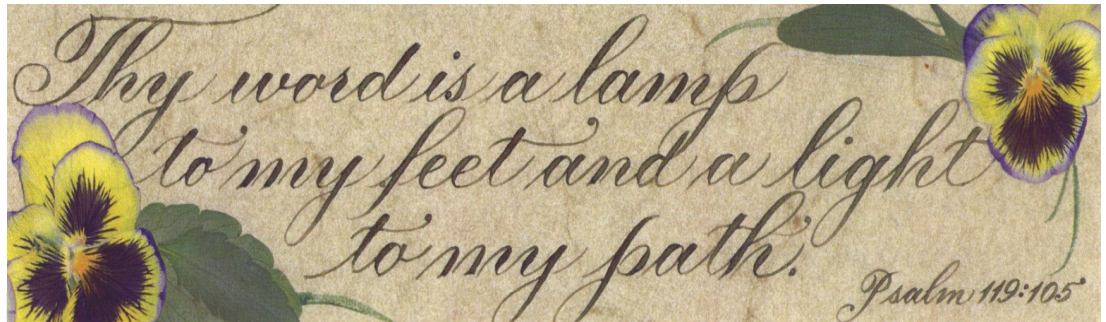 Thy word is a lamp
to my feet and a light
to my path.
Psalm 119:105